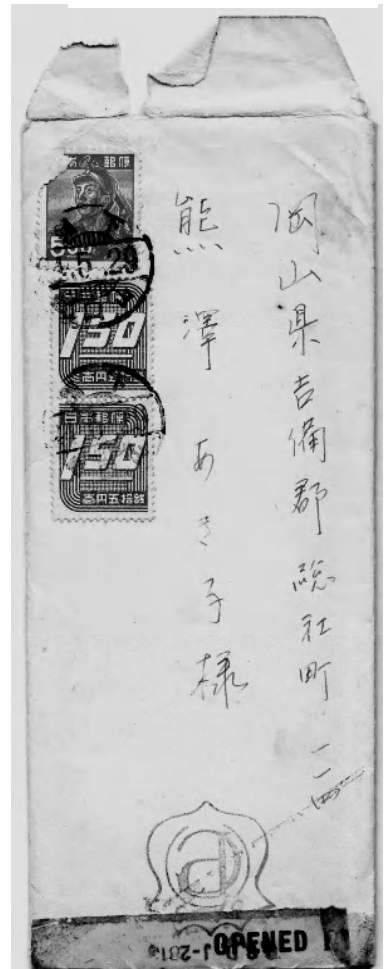 岡山県吉備郡総社町二四
熊澤あき子様
日本郵便
5.29
日本郵便
150
壱円五拾銭
日本郵便
150
壱円五拾銭
OPENED
J-281